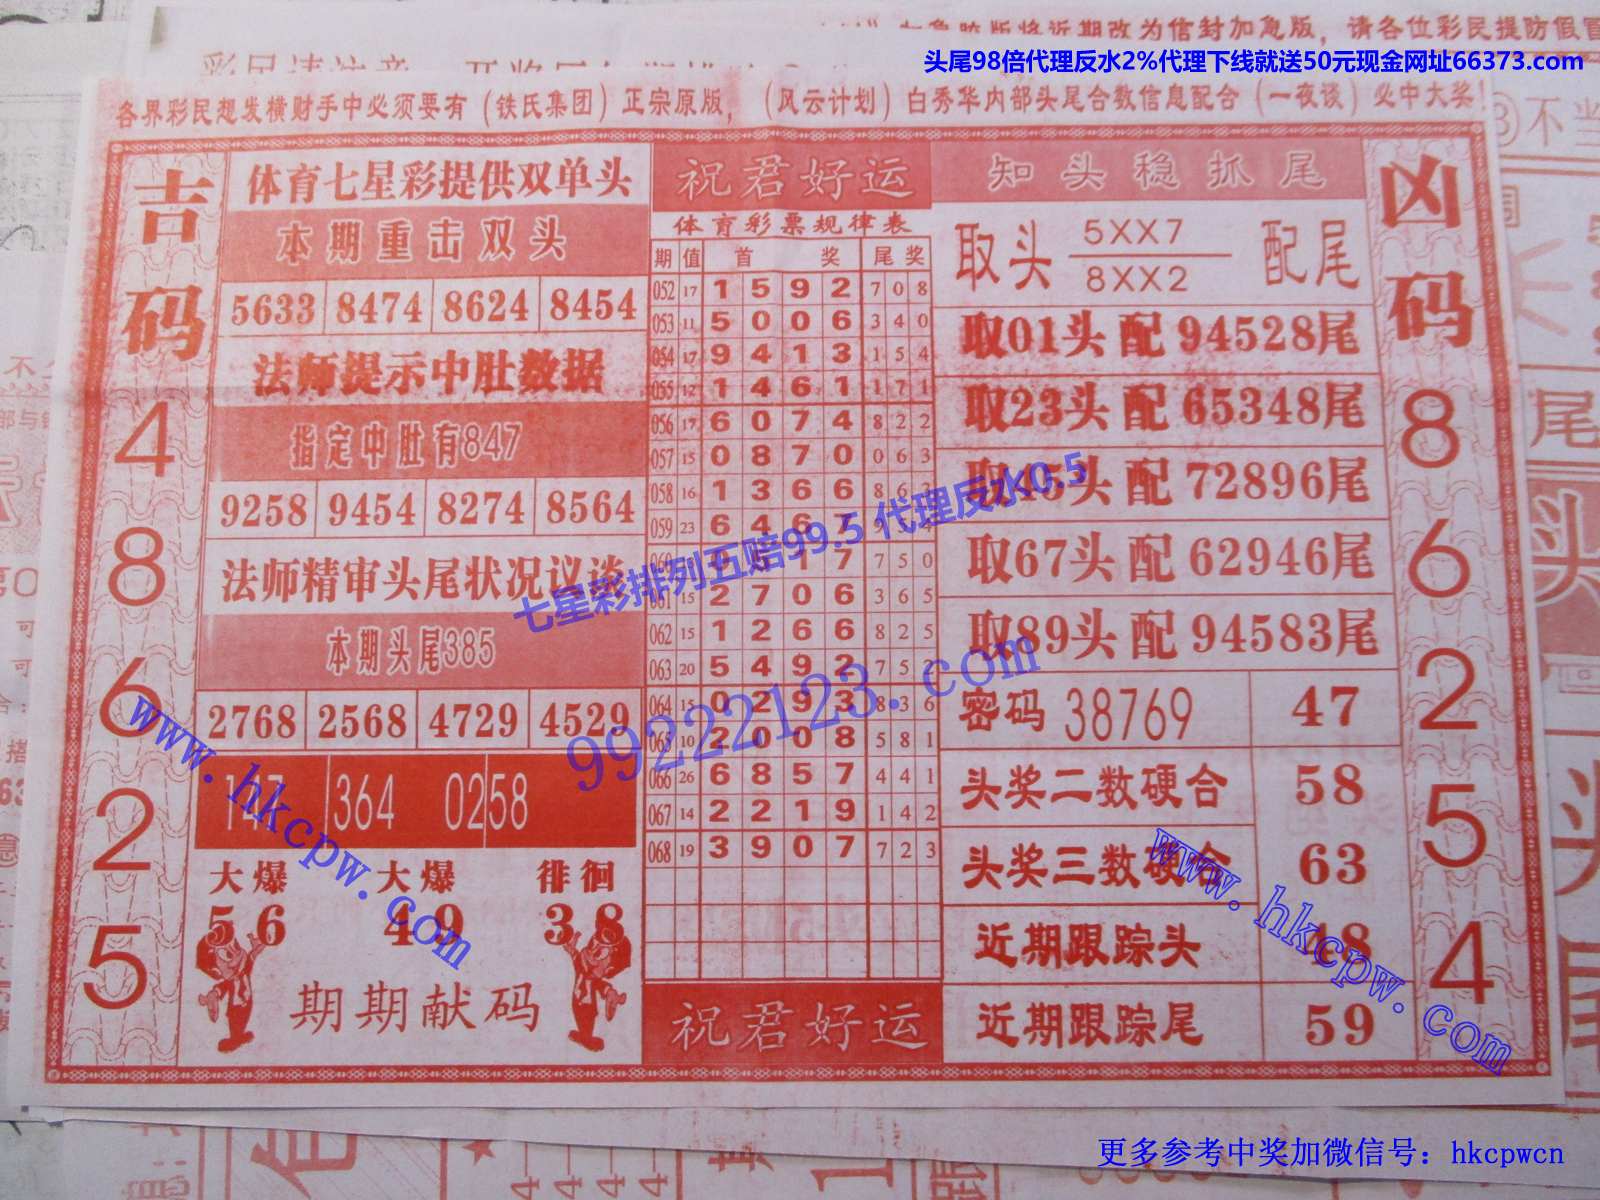 急胶版将近期改为信封加急版，请各位彩民提防假冒
头尾98倍代理反水2%代理下线就送50元现金网址66373.com
各界彩民想发横财手中必须要有（铁氏集团）正宗原版，（风云计划）白秀华内部头尾合数信息配合（一夜谈）必中大奖！
吉码
4
8
6
2
5
体育七星彩提供双单头
本期重击双头
5633 8474 8624 8454
法师提示中肚数据
指定中肚有847
9258 9454 8274 8564
法师精审头尾状况议谈
本期头尾385
2768 2568 4729 4529
147 364 0258
大爆 大爆 徘徊
56 49 38
期期献码
祝君好运
体育彩票规律表
期 值 首 奖 尾 奖
052 17 1 5 9 2 7 0 8
053 11 5 0 0 6 3 4 0
054 17 9 4 1 3 1 5 4
055 12 1 4 6 1 1 7 1
056 17 6 0 7 4 8 2 2
057 15 0 8 7 0 0 6 3
058 16 1 3 6 6 8 6
059 23 6 4 6 7 9 5 4
060 1 7 7 5 0
061 15 2 7 0 6 3 6 5
062 15 1 2 6 6 8 2 5
063 20 5 4 9 2 7 5
064 15 0 2 9 3 8 3 6
065 10 2 0 0 8 5 8 1
066 26 6 8 5 7 4 4 1
067 14 2 2 1 9 1 4 2
068 19 3 9 0 7 7 2 3
祝君好运
知头稳抓尾
取头 5XX7 配尾
8XX2
取01头 配 94528尾
取23头 配 65348尾
取45头 配 72896尾
取67头 配 62946尾
取89头 配 94583尾
密码 38769 47
头奖二数硬合 58
头奖三数硬合 63
近期跟踪头 48
近期跟踪尾 59
凶码
8
6
2
5
4
七星彩排列五赔99.5 代理反水0.5
99222123.com
www.hkcpw.com
www.hkcpw.com
更多参考中奖加微信号：hkcpwcn